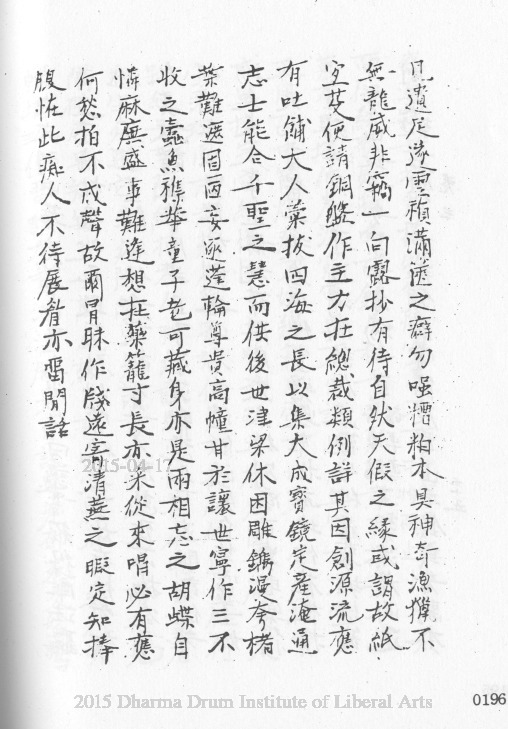 凡遺足逐雪積滿篋之癖勿嗤糟粕本具神奇漁獵不
無龍威非竊一向露抄有待自然天假之緣或謂故紙
宜焚便請銅盤作主力在總裁類例詳其因創源流應
有吐餔大人藁拔四海之長以集大成寶鏡定產淹通
志士能合千聖之慧而供後世津梁休困雕鐫漫夸楮
葉難邀固西妄逐蓬輪尊貴高幢甘於讓世寧作三不
收之蠹魚雅攀童子老可藏身亦是兩相忘之胡蝶自
憐麻廣盛事難逢想在藥籠寸長亦采從來唱必有應
何愁拍不成聲故爾冒昧作牋遠寄清燕之暇定知捧
腹怪此癡人不待展眷亦當閒話
2015-04-17
2015 Dharma Drum Institute of Liberal Arts
0196